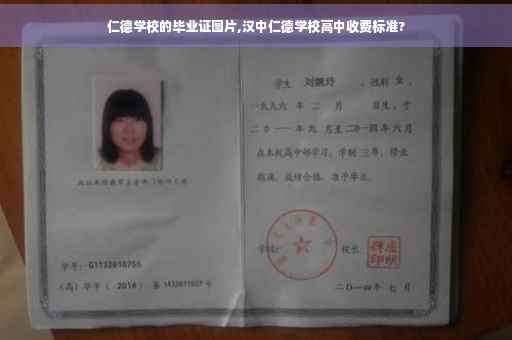 仁德学校的毕业证图片,汉中仁德学校高中收费标准?
学生 刘婉玲 ，性别 女 ，
一九九六 年 二 月 日生，于
二〇一一 年 九 月至 二〇一四 年 六 月
在本校高中部学习，学制 三 年，修业
期满，成绩合格，准予毕业。
学校：
校长：
二〇一四年 七 月
学号： G1132010755
(高) 毕字 ( 2014 ) 第 1432011027 号